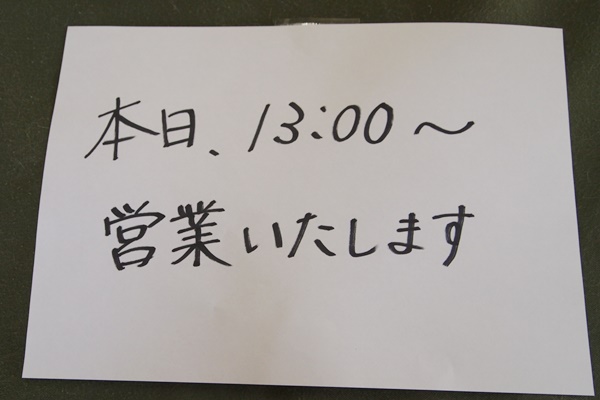 本日、13:00～
営業いたします